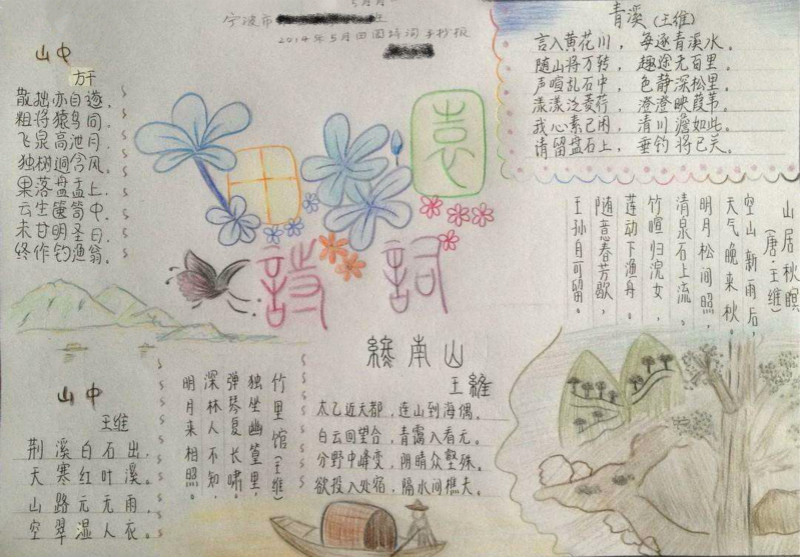 宁波市
2014年5月田园诗词手抄报
田园
诗词
山中
方干
散拙亦自遂，
粗将猿鸟同，
飞泉高池月，
独树迥含风。
果落盘盂上，
云生箧笥中，
未甘明圣日，
终作钓渔翁。
青溪（王维）
言入黄花川，每逐青溪水。
随山将万转，趣途无百里。
声喧乱石中，色静深松里。
漾漾泛菱荇，澄澄映葭苇。
我心素已闲，清川澹如此。
请留盘石上，垂钓将已矣。
山居秋暝
（唐·王维）
空山新雨后，
天气晚来秋。
明月松间照，
清泉石上流。
竹喧归浣女，
莲动下渔舟。
随意春芳歇，
王孙自可留。
山中
王维
荆溪白石出，
天寒红叶溪。
山路元无雨，
空翠湿人衣。
竹里馆（王维）
独坐幽篁里，
弹琴复长啸。
深林人不知，
明月来相照。
终南山
王维
太乙近天都，连山到海偶。
白云回望合，青霭入看元。
分野中峰变，阴晴众壑殊。
欲投人处宿，隔水问樵夫。